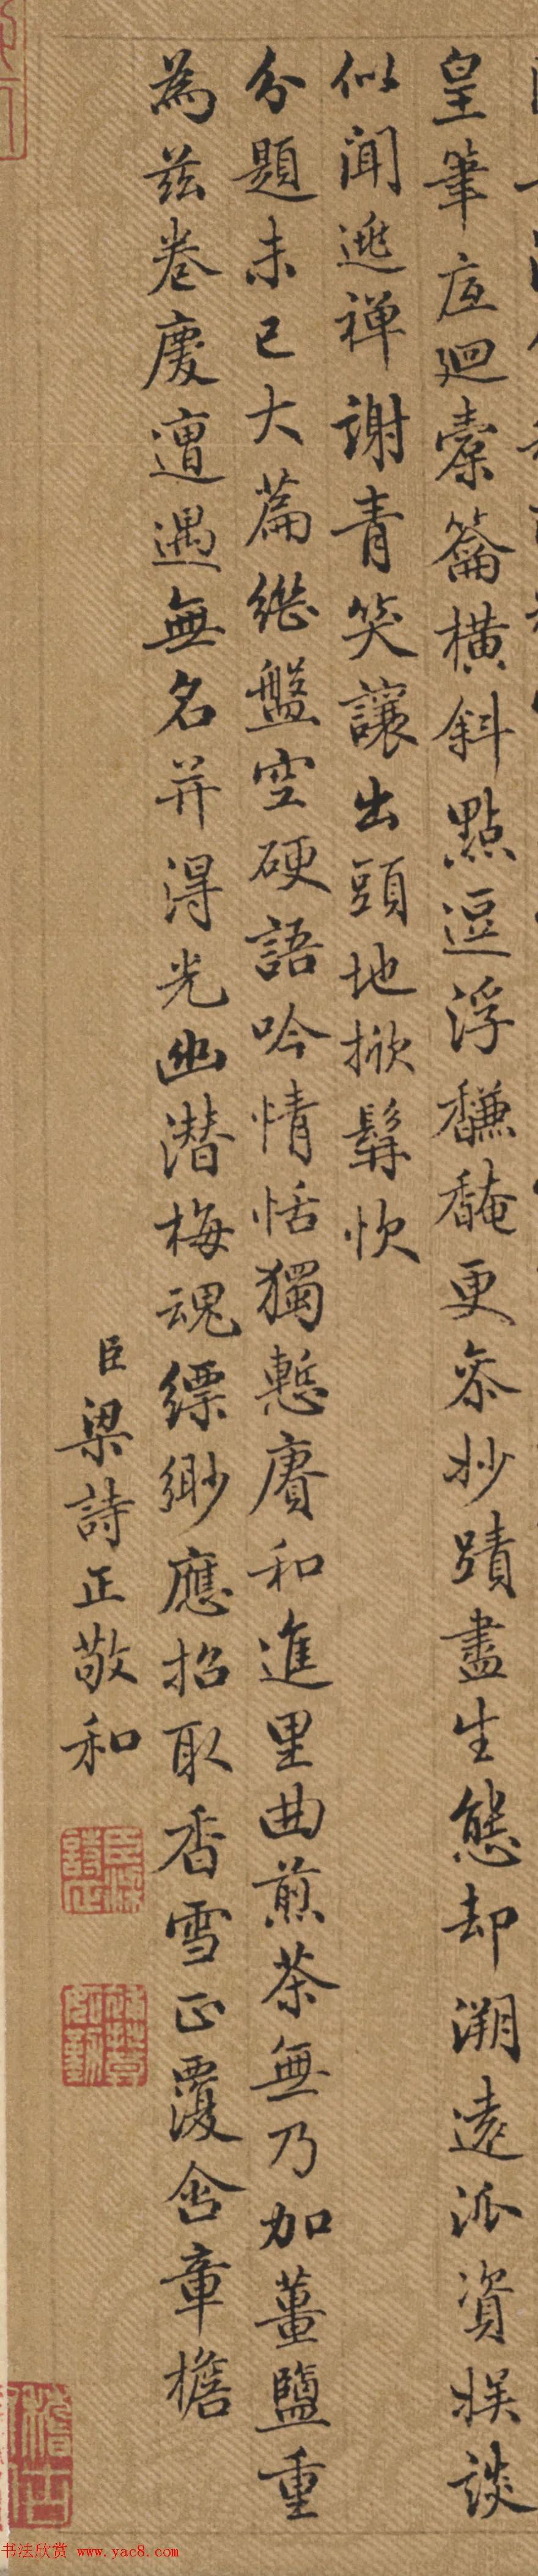 皇筆庭迴橐籥橫斜點逗浮馦馣更叅妙蹟盡生態却溯遠派資娱談
似聞逃禪謝青笑讓出頭地掀髯忺
分題未已大篇繼盤空硬語吟情恬獨慙賡和進里曲煎茶無乃加薑鹽重
為茲卷慶遭遇無名并得光幽潛梅魂縹緲應招取香雪正覆含章檐
臣梁詩正敬和
书法欣赏 www.yac8.com